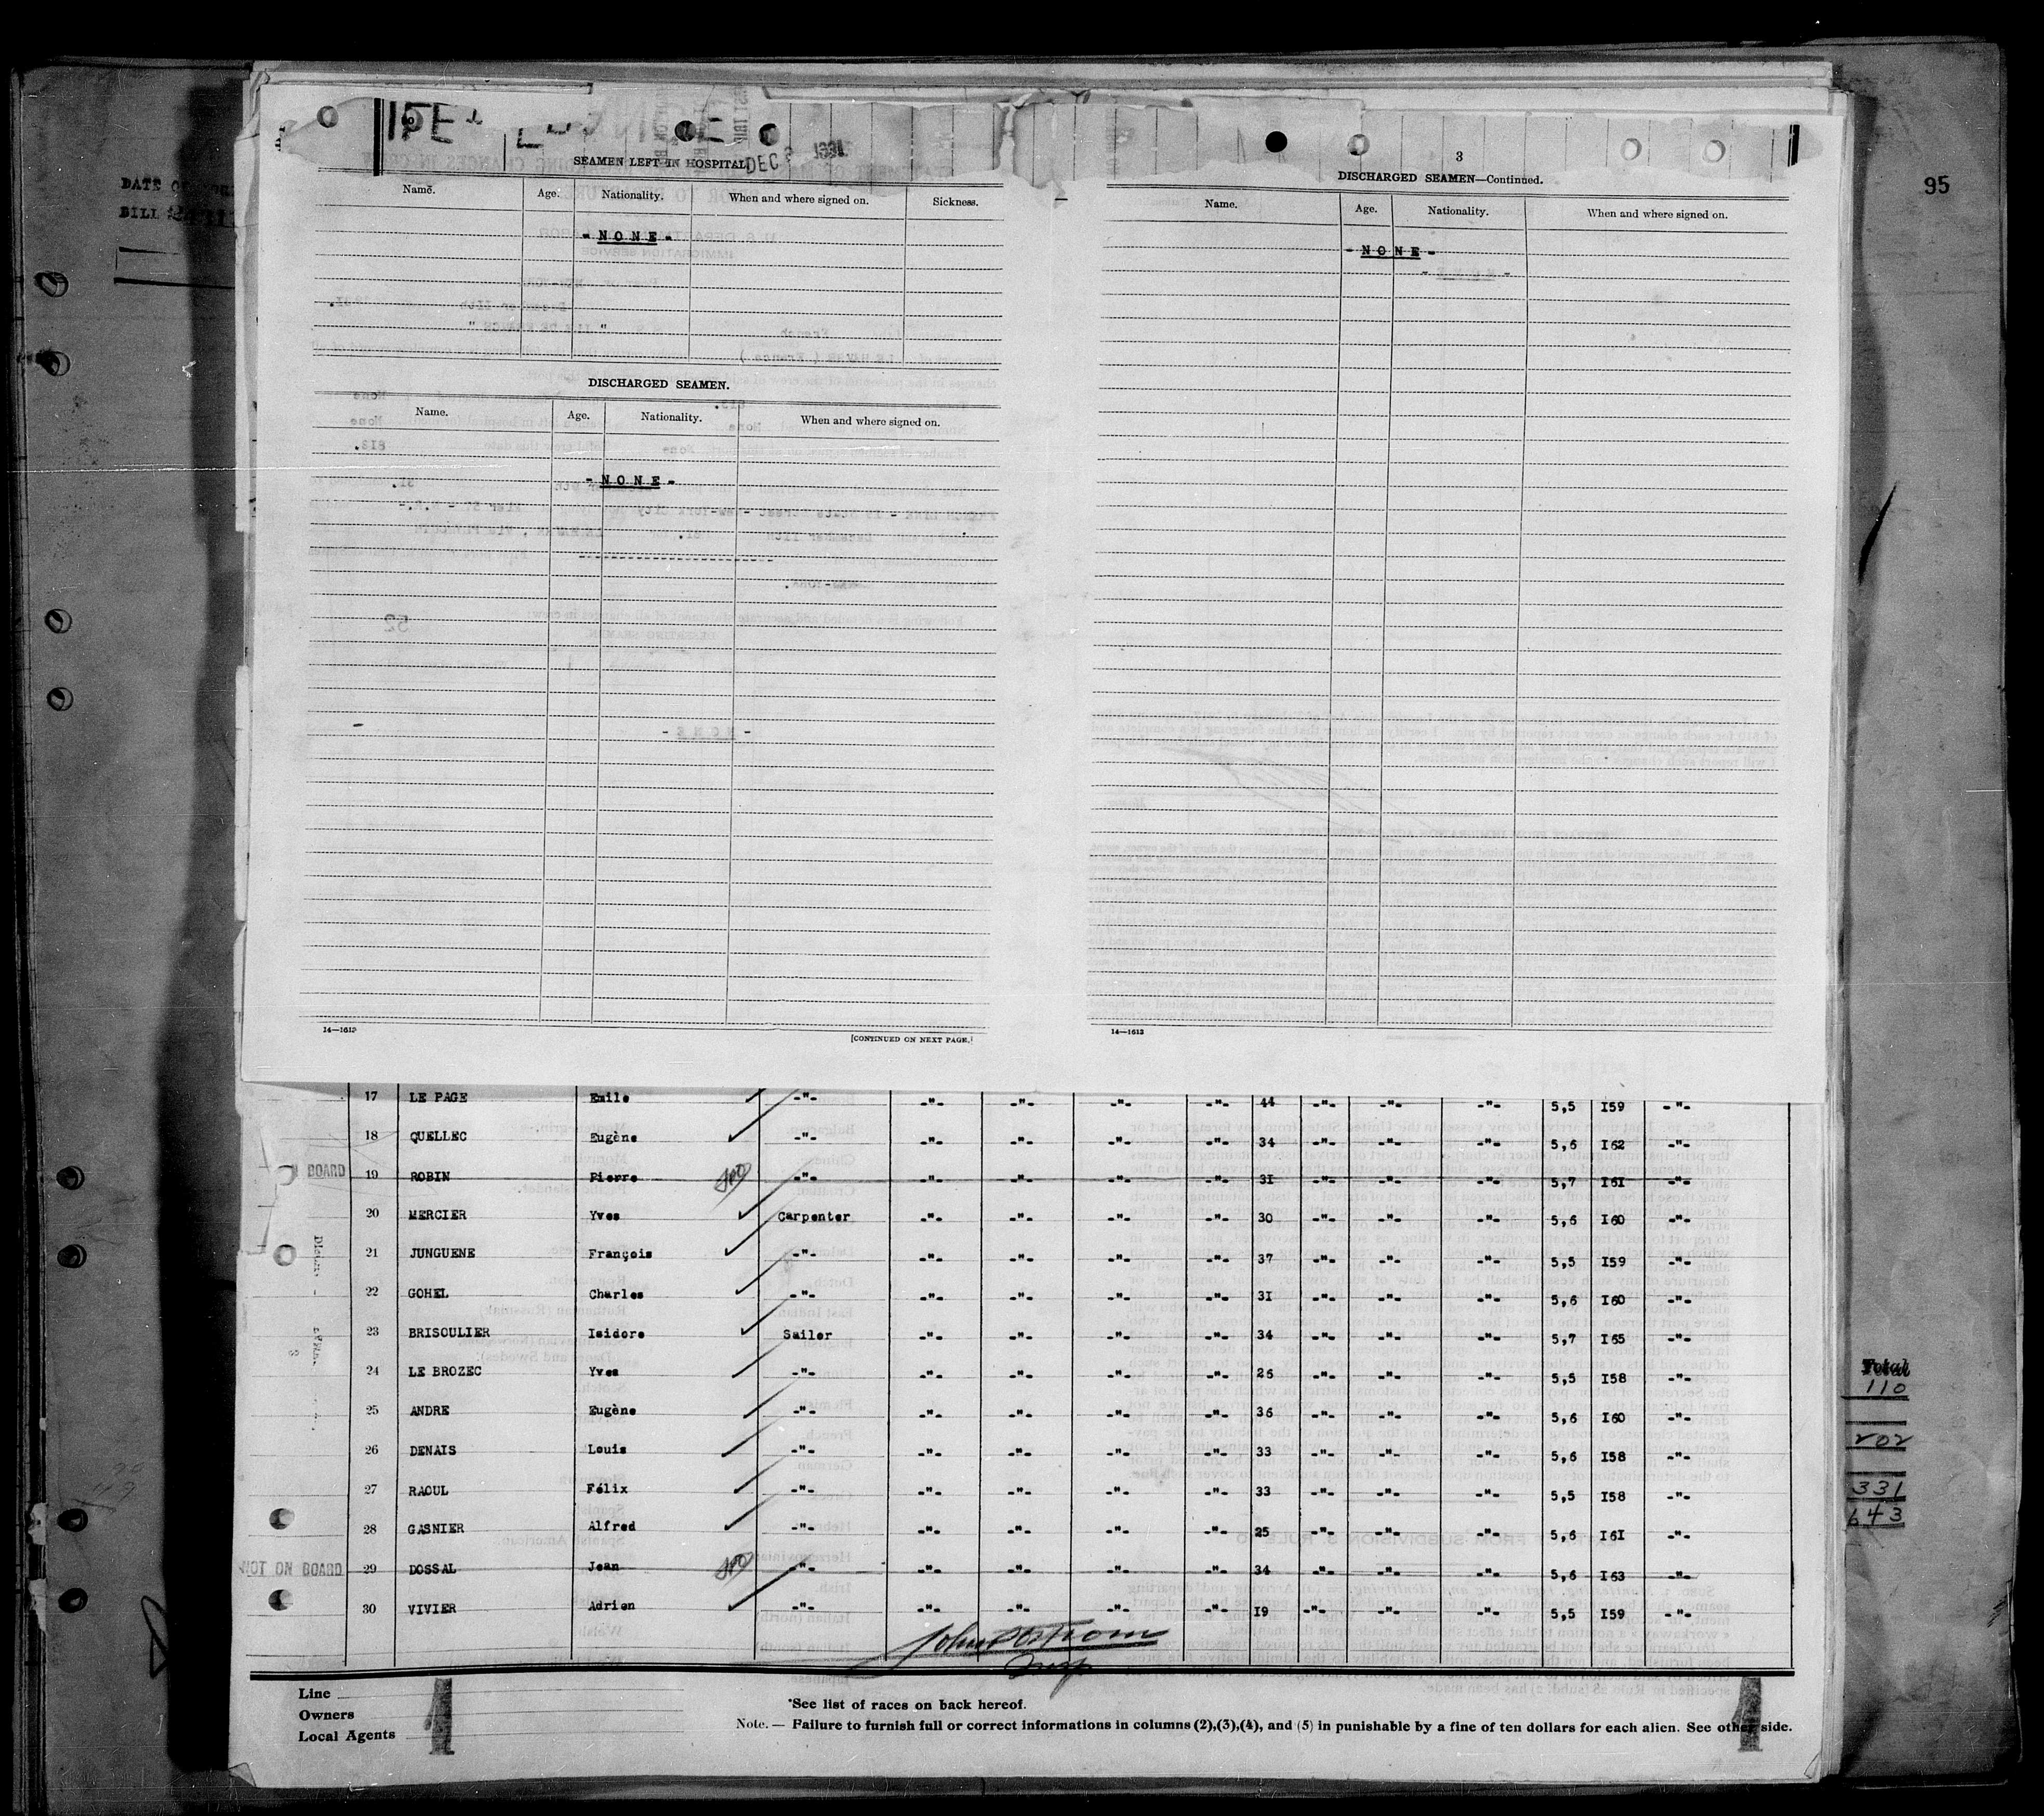 95
DATE O
BILL
DEC 1931
SEAMEN LEFT IN HOSPITAL
Name. Age. Nationality. When and where signed on. Sickness.
- N O N E -
DISCHARGED SEAMEN.
Name. Age. Nationality. When and where signed on.
- N O N E -
14—1613
[CONTINUED ON NEXT PAGE.]
3
DISCHARGED SEAMEN—Continued.
Name. Age. Nationality. When and where signed on.
- N O N E -
14—1613
17 LE PAGE Emile -"- -"- -"- -"- -"- 44 -"- -"- -"- 5,5 I59 -"-
18 QUELLEC Eugène -"- -"- -"- -"- -"- 34 -"- -"- -"- 5,6 I62 -"-
BOARD 19 ROBIN Pierre -"- -"- -"- -"- -"- 3I -"- -"- -"- 5,7 I6I -"-
20 MERCIER Yves Carpenter -"- -"- -"- -"- 30 -"- -"- -"- 5,6 I60 -"-
21 JUNGUENE François -"- -"- -"- -"- -"- 37 -"- -"- -"- 5,5 I59 -"-
22 GOHEL Charles -"- -"- -"- -"- -"- 3I -"- -"- -"- 5,6 I60 -"-
23 BRISOULIER Isidore Sailor -"- -"- -"- -"- 34 -"- -"- -"- 5,7 I65 -"-
24 LE BROZEC Yves -"- -"- -"- -"- -"- 26 -"- -"- -"- 5,5 I58 -"-
25 ANDRE Eugène -"- -"- -"- -"- -"- 36 -"- -"- -"- 5,6 I60 -"-
26 DENAIS Louis -"- -"- -"- -"- -"- 33 -"- -"- -"- 5,6 I58 -"-
27 RAOUL Félix -"- -"- -"- -"- -"- 33 -"- -"- -"- 5,5 I58 -"-
28 GASNIER Alfred -"- -"- -"- -"- -"- 25 -"- -"- -"- 5,6 I6I -"-
NOT ON BOARD 29 DOSSAL Jean -"- -"- -"- -"- -"- 34 -"- -"- -"- 5,6 I63 -"-
30 VIVIER Adrien -"- -"- -"- -"- -"- I9 -"- -"- -"- 5,5 I59 -"-
Insp
Line
Owners
Local Agents
*See list of races on back hereof.
Note. — Failure to furnish full or correct informations in columns (2),(3),(4), and (5) in punishable by a fine of ten dollars for each alien. See other side.
1
1
Total
110
202
331
643